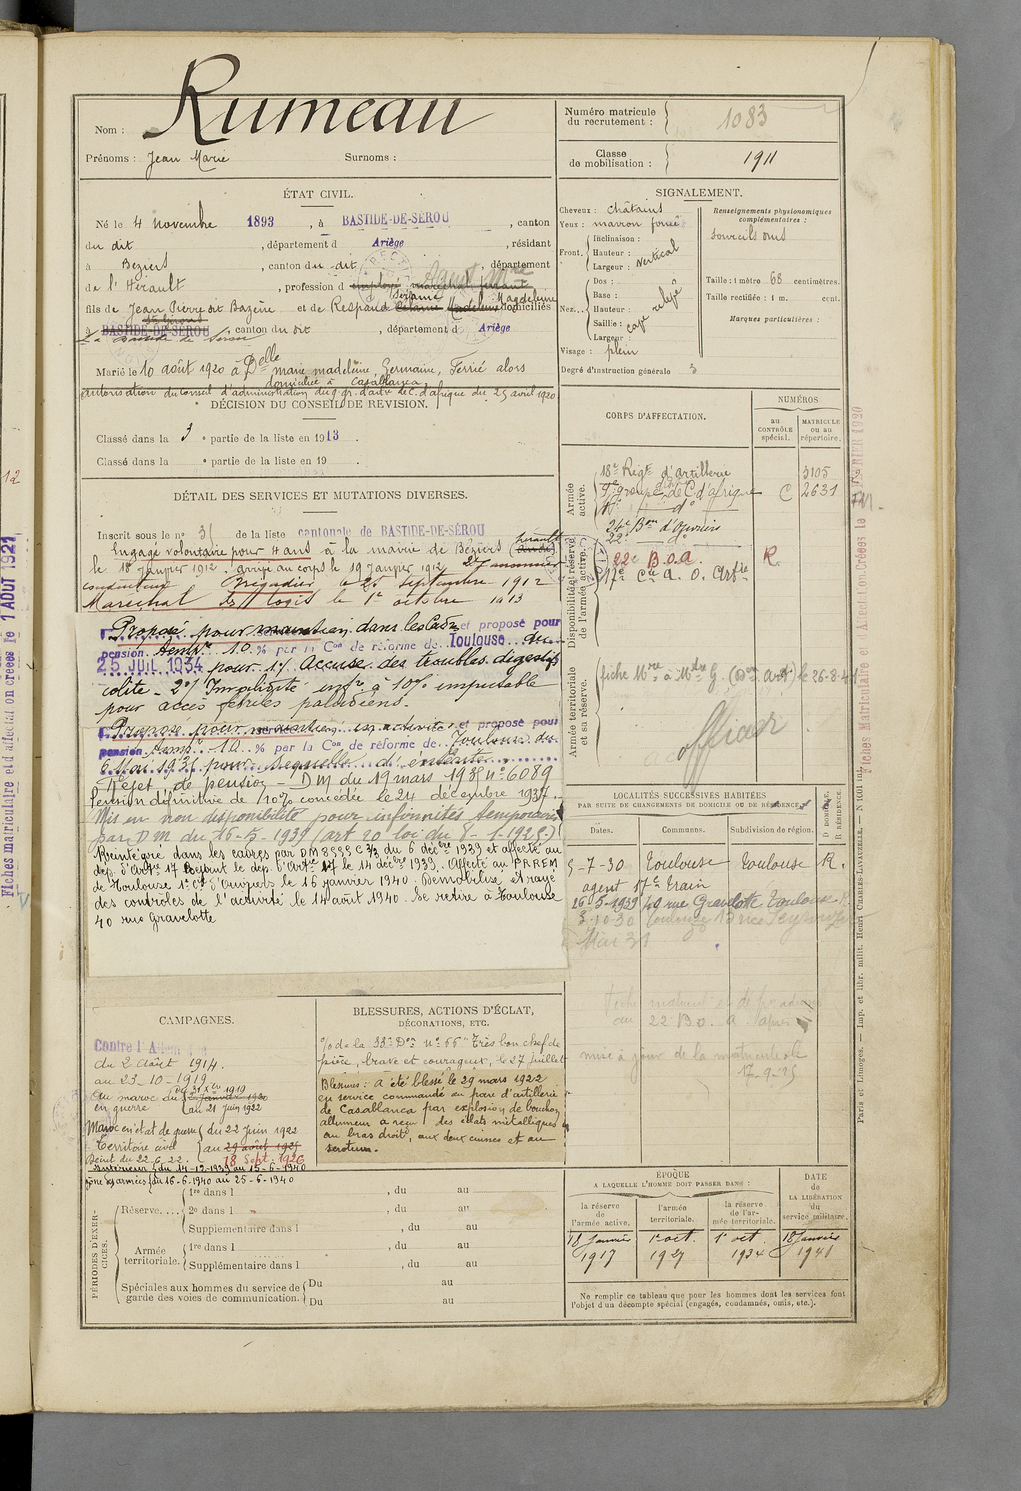 Nom : Rumeau
Prénoms : Jean Marie Surnoms :
Numéro matricule du recrutement : 1083
Classe de mobilisation : 1911
ÉTAT CIVIL.
Né le 4 novembre 1893, à BASTIDE-DE-SÉROU, canton
du dit, département d Ariège, résidant
à Beziers, canton du dit, département
de l'Hérault, profession d employé maréchal ferrant Agent Mre
Bérame Magdeleine
fils de Jean Pierre dit Bazène et de Respaud Madeleine domiciliés
à BASTIDE-DE-SÉROU, canton du dit, département d Ariège
La Bastide de Serou
Marié le 10 août 1920 à Delle marie madeleine, Germaine, Terrié alors
domiciliée à Casablanca
autorisation du conseil d'administration du 9e gr. d'art. de C. d'afrique du 25 avril 1920
DÉCISION DU CONSEIL DE REVISION.
Classé dans la 3e partie de la liste en 1913.
Classé dans la e partie de la liste en 19 .
DÉTAIL DES SERVICES ET MUTATIONS DIVERSES.
Inscrit sous le no 31 de la liste cantonale de BASTIDE-DE-SÉROU
Engagé volontaire pour 4 ans à la mairie de Béziers (Hérault)
le 18 janvier 1912, arrivé au corps le 19 janvier 1912, 2e canonnier
conducteur Brigadier le 25 septembre 1912
Maréchal des logis le 1er octobre 1913
Proposé pour maintien dans les et proposé pour
pension temp. 10 % par la Con de réforme de Toulouse du
25 JUIL 1934 pour 1°/ Accuse des troubles digestifs
colite - 2°/ Impaludité inf. à 10% imputable
pour accès febriles paludéens.
Proposé pour maintien en activité et proposé pour
pension temp. 10 % par la Con de réforme de Toulouse du
6 Mai 1936 pour Sequelles d'entérite
Rejet de pension - DM du 19 mars 1935 no 6089
Pension définitive de 10% concédée le 24 décembre 1937.
Mis en non disponibilité pour infirmités temporaires
par DM du 16-5-1939 (art 20 loi du 8-1-1925)
Réintégré dans les cadres par DM 3999 C 2/3 du 6 décbre 1939 et affecté au
dép. d'Artie 17 Rejoint le dep. d'Artie 17 le 14 décbre 1939. Affecté au PRREM
de Toulouse 1e Cie d'Ouvriers le 16 janvier 1940. Démobilisé et rayé
des contrôles de l'activité le 14 août 1940. Se retire à Toulouse
40 rue Gravelotte
SIGNALEMENT.
Cheveux : châtains
Yeux : marron foncé
Front. Inclinaison :
Hauteur : vertical
Largeur :
Nez. Dos :
Base :
Hauteur : cave relevé
Saillie :
Largeur :
Visage : plein
Renseignements physionomiques complémentaires :
sourcils
Taille : 1 mètre 68 centimètres.
Taille rectifiée : 1 m. cent.
Marques particulières :
Degré d'instruction générale 3
CORPS D'AFFECTATION.
NUMÉROS
au CONTRÔLE spécial.
MATRICULE ou au répertoire.
Armée active.
18e Régt d'artillerie 3105
9e groupe de C d'afrique C 2631
10e do
24e Bon d'Ouvriers
22e do
Disponibilité et réserve de l'armée active.
22e B.O.A. R.
17e Cie a. O. Artie
Armée territoriale et sa réserve.
fiche Mre à Mdre G. (Don Art) le 26-8-
officier
LOCALITÉS SUCCESSIVES HABITÉES
PAR SUITE DE CHANGEMENTS DE DOMICILE OU DE RÉSIDENCE.
Dates. Communes. Subdivision de région. D DOMICILE. R RÉSIDENCE
5-7-30 Toulouse Toulouse R.
agent 17e Train
26-5-1939 40 rue Gravelotte Toulouse R
3-10-30 Toulouse 13 rue
Mai 31
au 22 B.O.A.
mise à jour de la matricule
17-9-25
CAMPAGNES.
Contre l'Allemagne
du 2 août 1914.
au 23-10-1919
au maroc du 31 Xbre 1919
en guerre au 21 juin 1922
Maroc en état de guerre du 22 juin 1922
Territoire civil au 29 août 1925
Décret du 22.6.22. 18 Sept. 1926
Intérieur du 14-12-1939 au 15-6-1940
Zone des armées du 16-6-1940 au 25-6-1940
BLESSURES, ACTIONS D'ÉCLAT,
DÉCORATIONS, ETC.
% de la 33e Don no 66 "Très bon chef de
pièce, brave et courageux, le 27 juillet
Blessures : A été blessé le 29 mars 1922
en service commandé au parc d'artillerie
de Casablanca par explosion de bouchon
allumeur a reçu des éclats métalliques
au bras droit, aux deux cuisses et au
scrotum.
PÉRIODES D'EXERCICES.
Réserve.... 1re dans l , du au
2e dans l , du au
Supplémentaire dans l , du au
Armée territoriale. 1re dans l , du au
Supplémentaire dans l , du au
Spéciales aux hommes du service de garde des voies de communication. Du au
Du au
ÉPOQUE
A LAQUELLE L'HOMME DOIT PASSER DANS :
la réserve de l'armée active.
l'armée territoriale.
la réserve de l'armée territoriale.
DATE de LA LIBÉRATION du service militaire.
18 Janvier 1917
1er oct. 1927
1er oct. 1934
18 Janvier 1941
Ne remplir ce tableau que pour les hommes dont les services font
l'objet d'un décompte spécial (engagés, condamnés, omis, etc.).
Paris et Limoges. — Imp. et libr. milit. Henri CHARLES-LAVAUZELLE. — N° 1001 int.
Fiches Matriculaire et d'Affectation Créées le FÉVRIER 1920
Fiches matriculaire et d affectation créées le 1 AOUT 1921
12